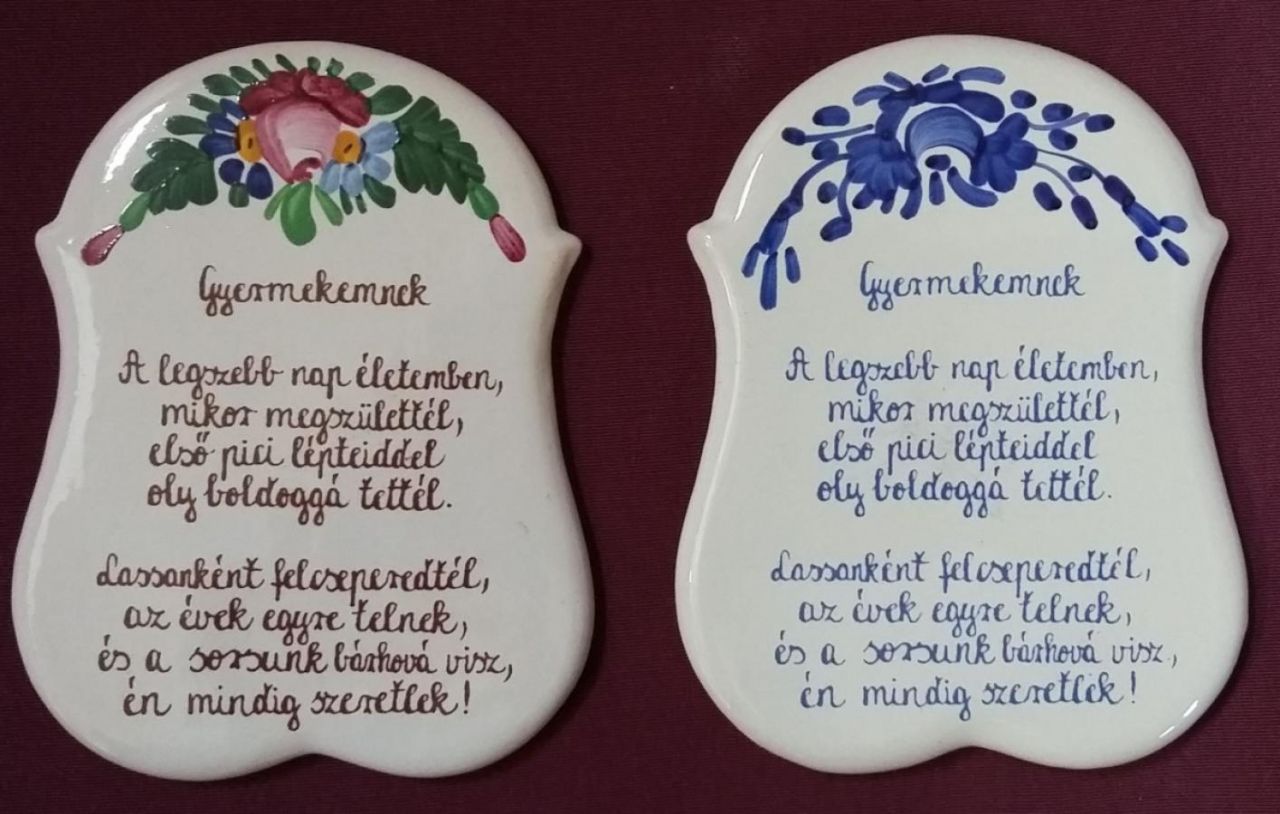 Gyermekemnek
A legszebb nap életemben,
mikor megszülettél,
első pici lépteiddel
oly boldoggá tettél.
Lassanként felcseperedtél,
az évek egyre telnek,
és a sorsunk bárhová visz,
én mindig szeretlek!
Gyermekemnek
A legszebb nap életemben,
mikor megszülettél,
első pici lépteiddel
oly boldoggá tettél.
Lassanként felcseperedtél,
az évek egyre telnek,
és a sorsunk bárhová visz,
én mindig szeretlek!